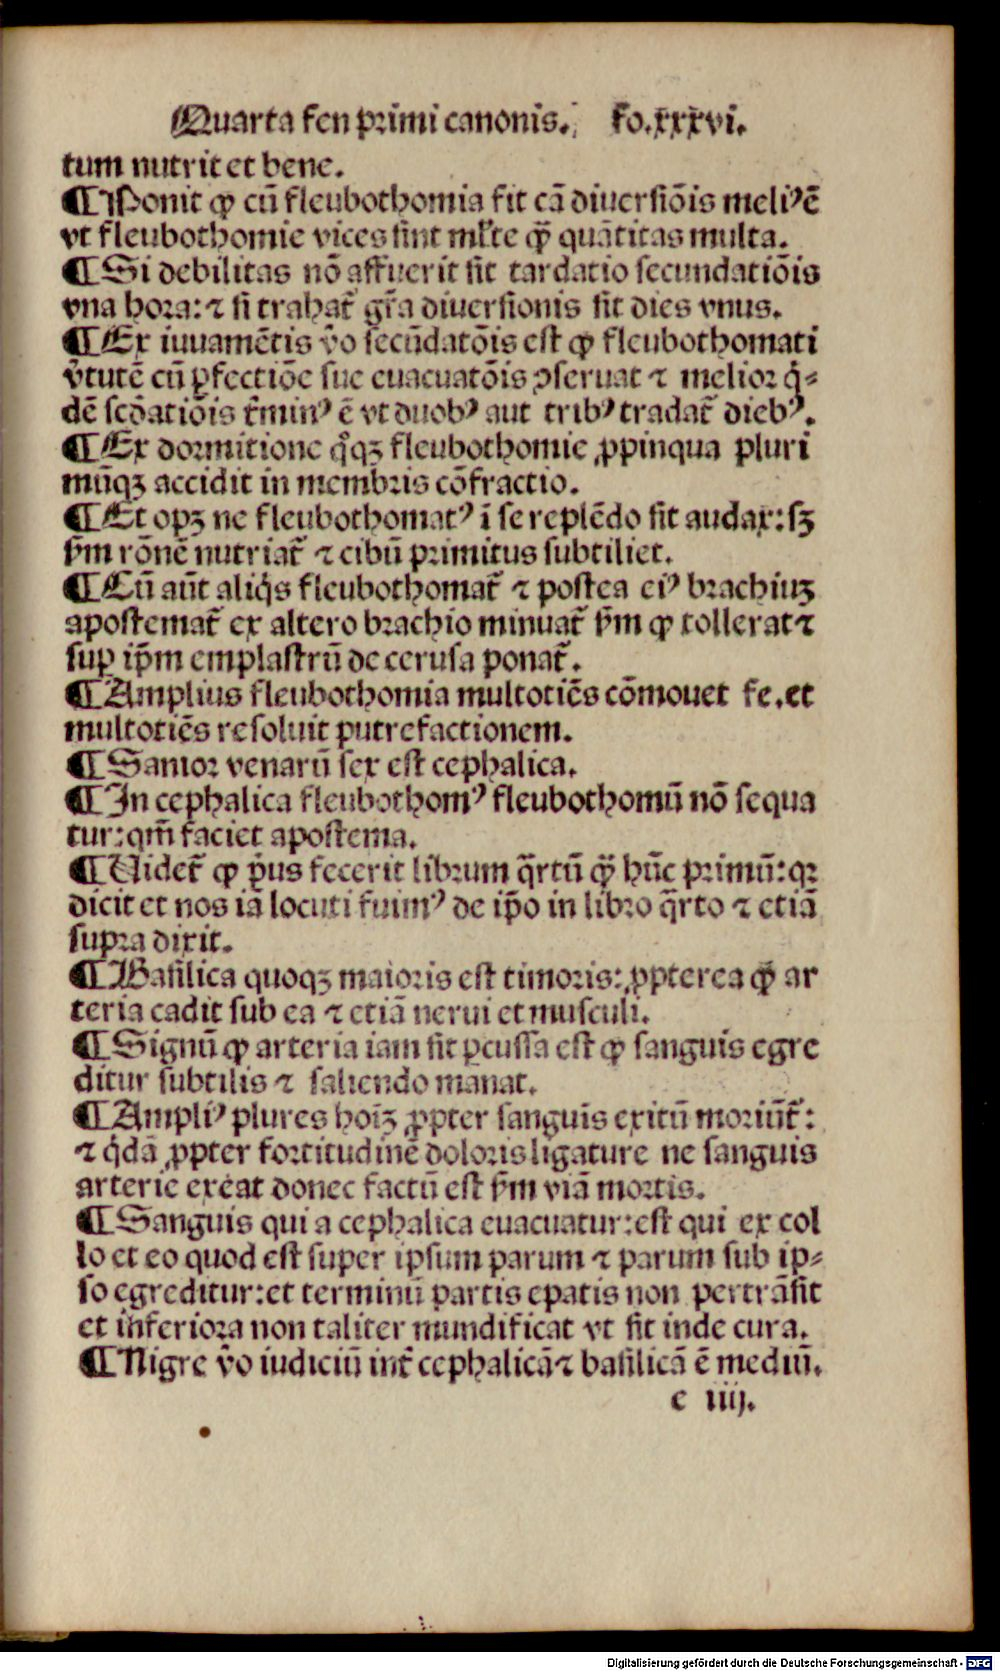 Quarta fen primi canonis. Fo.xxxvi.
tum nutrit et bene.
¶ Ponit ꝙ cũ fleubothomia fit cã diuersiõis meliꝰ ẽ
vt fleubothomie vices sint ml̃te ꝙ̃ quãtitas multa.
¶ Si debilitas nõ affuerit sit tardatio secundatiõis
vna hora: ⁊ si trahat̃ gr̃a diuersionis sit dies vnus.
¶ Ex iuuamẽtis v̊o secũdatõis est ꝙ fleubothomati
v̓tutẽ cũ ꝑfectiõe sue euacuatõis ꝯseruat ⁊ melior q̇⸗
dẽ scd̃atiõis t̓minꝰ ẽ vt duobꝰ aut tribꝰ tradat̃ diebꝰ.
¶ Ex dormitione q̊qꝫ fleubothomie ꝓpinqua pluri
mũqꝫ accidit in membris cõfractio.
¶ Et opꝫ ne fleubothomatꝰ ĩ se replẽdo sit audax: sꝫ
ẜm rõnẽ nutriat̃ ⁊ cibũ primitus subtiliet.
¶ Cũ aũt aliq̇s fleubothomat̃ ⁊ postea eiꝰ brachiuꝫ
apostemat̃ ex altero brachio minuat̃ ẜm ꝙ tollerat ⁊
suꝑ ip̃m emplastrũ de cerusa ponat̃.
¶ Amplius fleubothomia multotiẽs cõmouet fe. et
multotiẽs resoluit putrefactionem.
¶ Sanior venarũ sex est cephalica.
¶ In cephalica fleubothomꝰ fleubothomũ nõ sequa
tur: qm̃ faciet apostema.
¶ Uidet̃ ꝙ pͥus fecerit librum q̃rtũ ꝙ̃ hũc primũ: qꝛ
dicit et nos iã locuti fuimꝰ de ip̃o in libro q̃rto ⁊ etiã
supra dixit.
¶ Basilica quoqꝫ maioris est timoris: ꝓpterea ꝙ̃ ar
teria cadit sub ea ⁊ etiã nerui et musculi.
¶ Signũ ꝙ arteria iam sit ꝑcussa est ꝙ sanguis egre
ditur subtilis ⁊ saliendo manat.
¶ Ampliꝰ plures hoĩꝫ ꝓpter sanguĩs exitũ moriũt̃:
⁊ q̇dã ꝓpter fortitudinẽ doloris ligature ne sanguis
arterie exeat donec factũ est ẜm viã mortis.
¶ Sanguis qui a cephalica euacuatur: est qui ex col
lo et eo quod est super ipsum parum ⁊ parum sub ip⸗
so egreditur: et terminũ partis epatis non pertrãsit
et inferiora non taliter mundificat vt sit inde cura.
¶ Nigre v̊o iudiciũ int̓ cephalicã ⁊ basilicã ẽ mediũ.
e iiij.
Digitalisierung gefördert durch die Deutsche Forschungsgemeinschaft - DFG